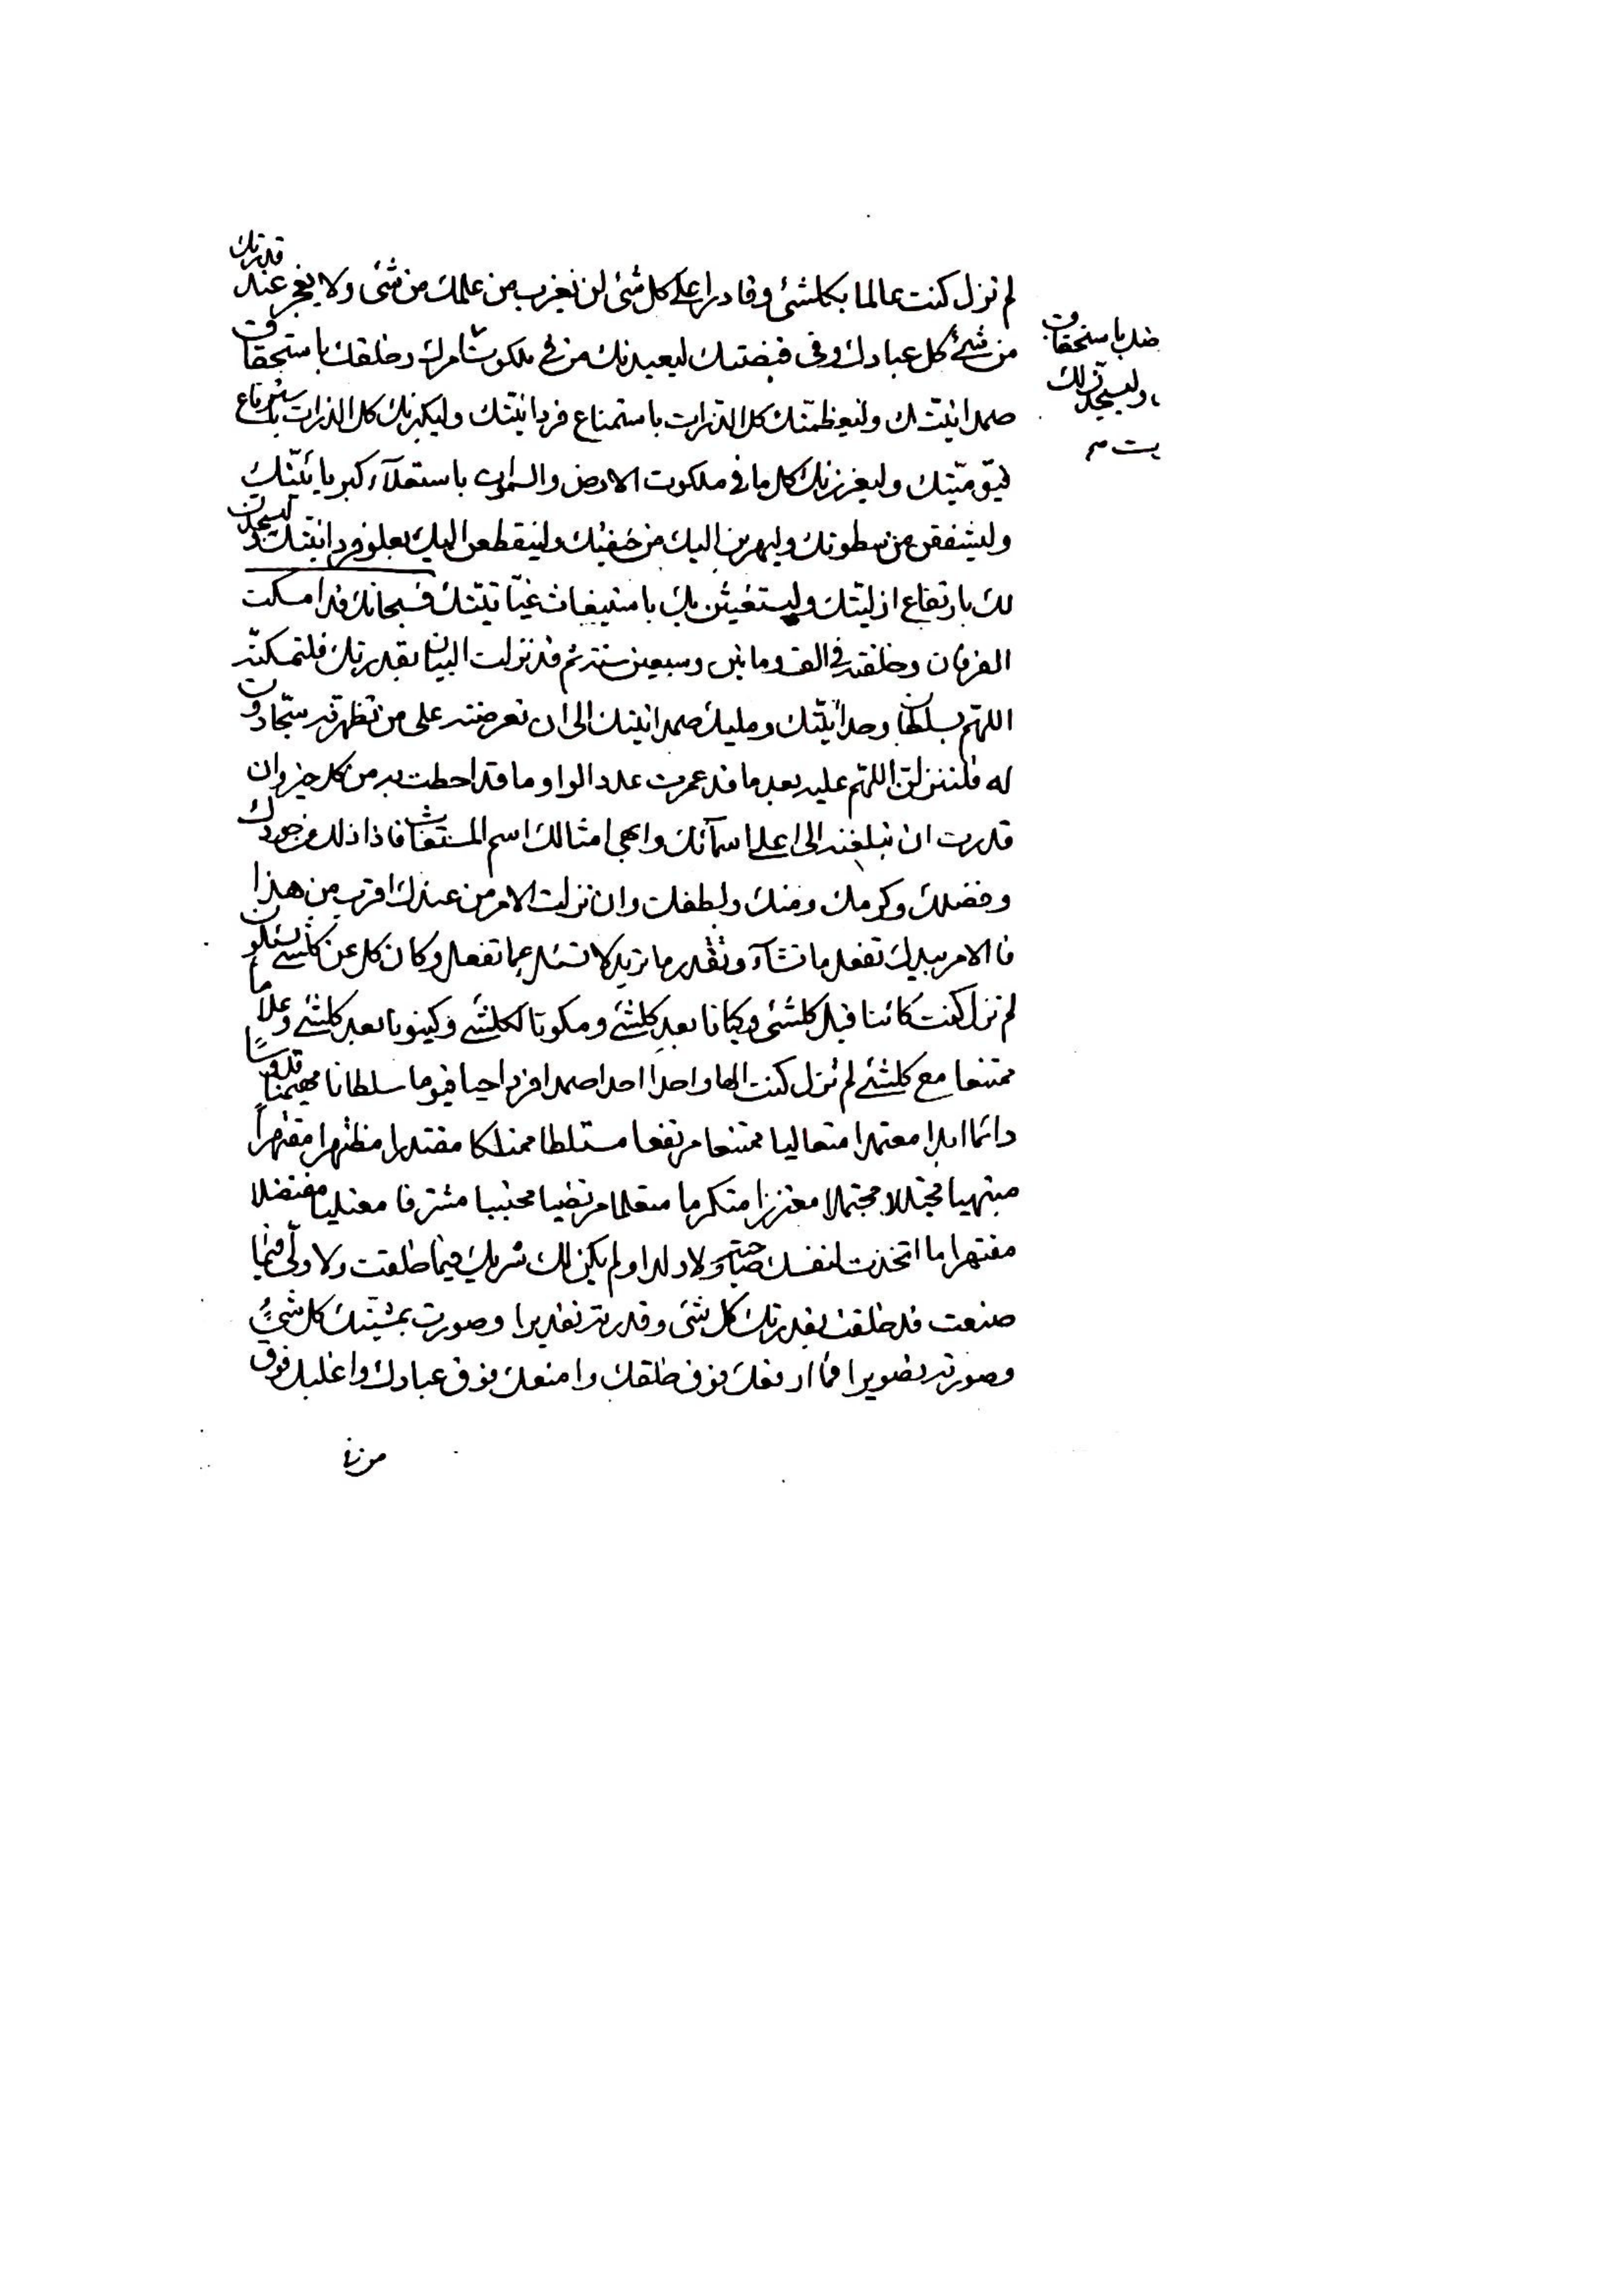 لم تزل كنت عالما بكلشئ وقادرا على كل شئ لن يعزب من علمك من شئ ولا يعجز عند قدرتك
من شئ كل عبادك وفى قبضتك ليعبدنك من فى ملكوت امرك وخلقك باستحقاق
صمدانيتك وليعظمنك كل الذرات باستمناع فردانيتك وليكبرنك كل الذرات باسترفاع
قيوميتك وليعززنك كل ما فى ملكوت الارض والسموات باستعلاء كبريائيتك
وليشفقن من سطوتك وليهربن اليك من خفيتك ولينقطعن اليك بعلو فردانيتك وليسجدن
لك بارتفاع ازليتك وليستغيثن بك باستيغاث غياثيتك فسبحانك قد امسكت
الفرقان وخلقته فى الف ومأتين وسبعين سنة ثم قد نزلت البيان بقدرتك فلتمسكنه
اللهم بسلطان وحدانيتك ومليك صمدانيتك الى ان تعرضنه على من تظهرنه سجادون
له فلتنزلن اللهم عليه بعد ما قد عمرت عدد الواو وما قد احطت به من كل خير وان
قدرت ان تبلغنه الى اعلى اسمآئك وابهى امثالك اسم المستغاث فاذا ذلك من جودك
وفضلك وكرمك ومنك ولطفك وان نزلت الامر من عندك اقرب من هذا
فالامر بيدك تفعل ما تشآء وتقدر ما تريد لا تسئل عما تفعل وكان كل عن كلشئ يسئلون
لم تزل كنت كائنا قبل كلشئ وكيانا بعد كلشئ ومكونا لكلشئ وكينونا بعد كلشئ وعلاما
ممتنعا مع كلشئ لم تزل كنت الها واحدا احدا صمدا فردا حيا قيوما سلطانا مهيمنا قدوسا
دائما ابدا معتمدا متعاليا ممتنعا مرتفعا مستلطا ممتلكا مقتدرا مظتهرا مقتهرا
مبتهيا مجتللا مجتملا معتززا متكرما متعلما مرتضيا محتببا مشترفا معتليا مفتضلا
مقتهرا ما اتخذت لنفسك صاحبة ولا ولدا ولم يكن لك شريك فيما خلقت ولا ولى فيما
صنعت قد خلقت بقدرتك كل شئ وقدرته تقديرا وصورت بمشيتك كل شئ
وصورته تصويرا فما ارفعك فوق خلقك وامنعك فوق عبادك واغلبك فوق